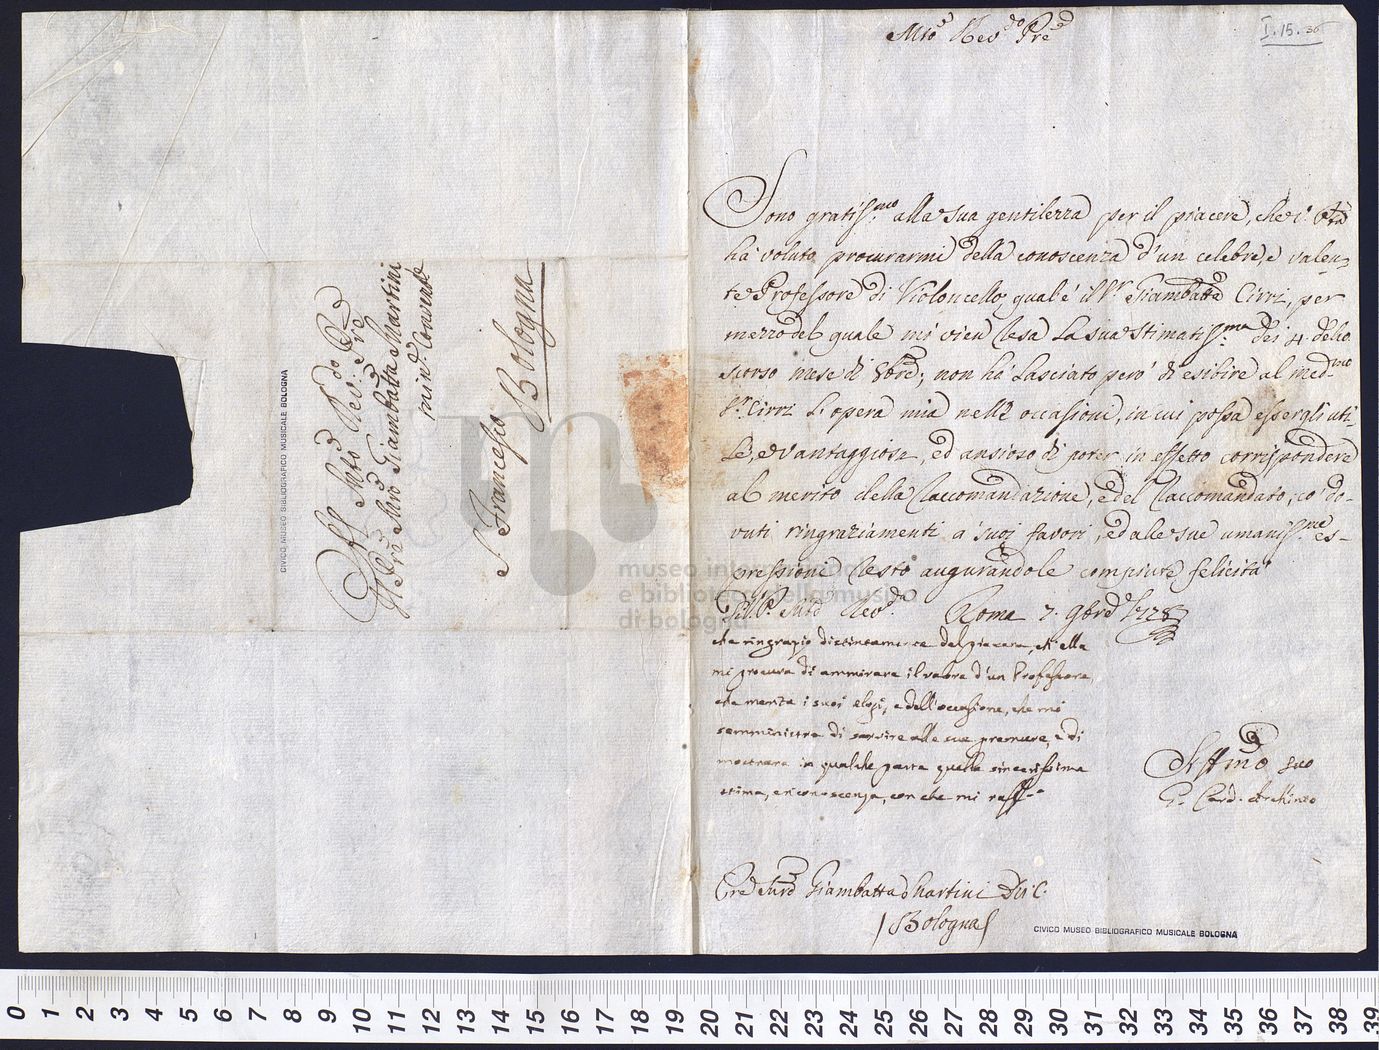 I. 15. 36
Mto Revdo Pre
Sono gratissmo alla sua gentilezza per il piacere, che
ha voluto procurarmi della conoscenza d'un celebre, e valen-
te Professore di Violoncello, qual'è il Sr Giambatta Cirri, per
mezzo del quale mi vien resa la sua stimatissma dei 4. dello
scorso mese di 8bre; non ha lasciato però di esibire al medmo
Sr Cirri l'opera mia nelle occasioni, in cui possa essergli uti-
le, e vantaggiosa, ed ansioso di poter in effetto corrispondere
al merito della raccomandazione, e del raccomandato, co' do-
vuti ringraziamenti a' suoi favori, ed alle sue umanissme es-
pressioni resto augurandole compiute felicità
Mto Revdo Roma 7. 9bre
che ringrazio distintamente del piacere, ch'ella
mi procura di ammirare il valore d'un Professore,
che merita i suoi elogi, e dell'occasione, che mi
somministra di servire alle sue premure, e di
mostrare in qualche parte quella sincerissima
stima, e riconoscenza, con che mi raffo
Affmo suo
G. Card. Archinto
Pre Mro Giambatta Martini Min. C.
(Bologna)
CIVICO MUSEO BIBLIOGRAFICO MUSICALE BOLOGNA
Al Mto Revdo Pre
Il Pre Mro Giambatta Martini
min. Convente
S. Francesco
Bologna
CIVICO MUSEO BIBLIOGRAFICO MUSICALE BOLOGNA
museo internazionale
e biblioteca della musica
di bologna
0 1 2 3 4 5 6 7 8 9 10 11 12 13 14 15 16 17 18 19 20 21 22 23 24 25 26 27 28 29 30 31 32 33 34 35 36 37 38 39